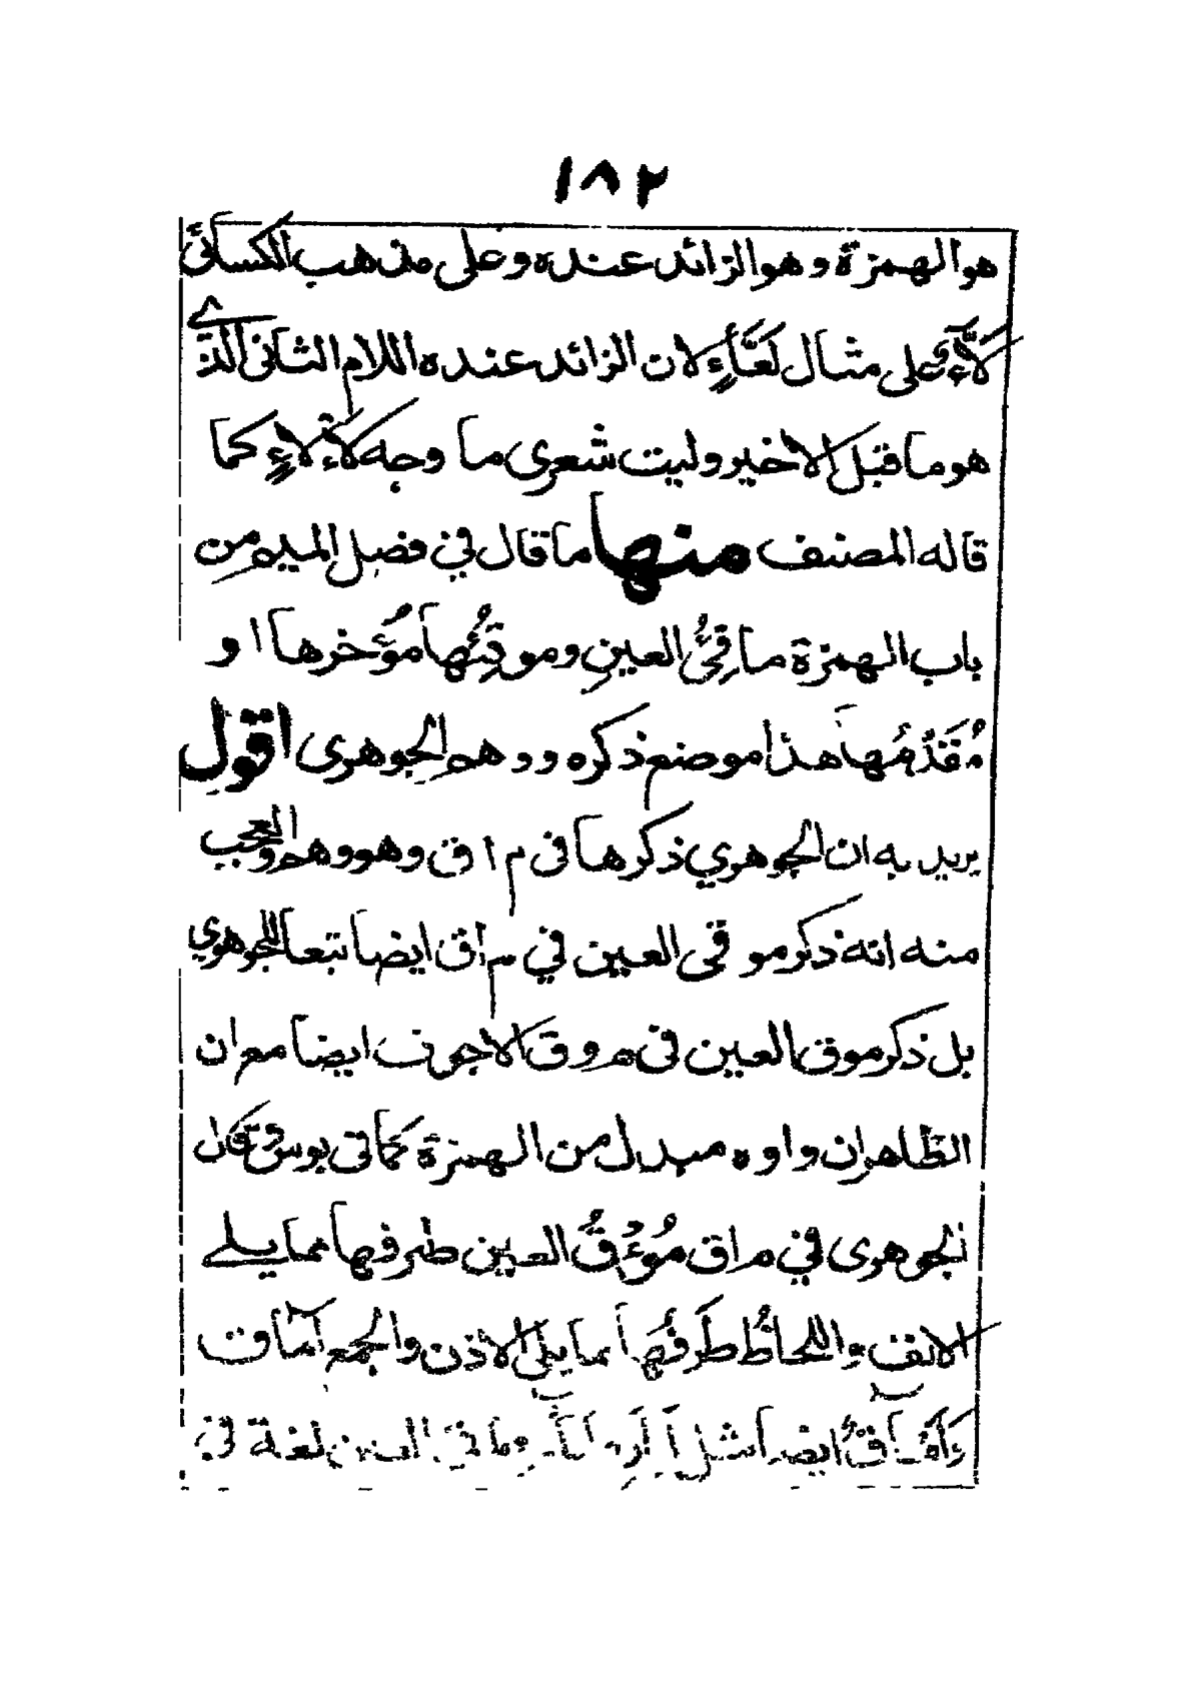 ١٨٢
هو الهمزة وهو الزائد عنده وعلى مذهب الكسائى
على مثال لَعَّاءٍ لان الزائد عنده اللام الثانى الذى
هو ما قبل الاخير وليت شعرى ما وجه لاءٍ كما
قاله المصنف منها ما قال في فصل الميم من
باب الهمزة ماقِئُ العينِ وموقِئُها مؤُخرها او
مُقَدَّمُها هذا موضع ذكره ووهم الجوهرى اقول
يريد به ان الجوهري ذكرها فى م ا ق وهو وهم والعجب
منه انه ذكر موقى العين في م ا ق ايضا تبعا للجوهري
بل ذكر موق العين فى م و ق الاجوف ايضا مع ان
الظاهر ان واوه مبدل من الهمزة كما فى بوس وقال
الجوهرى في م ا ق مُؤْقُ العين طرفها مما يلے
الانف واللحاظُ طَرَفُهَا مما يلى الاذن والجمع آمَاق
ايضا مثل لغة فى